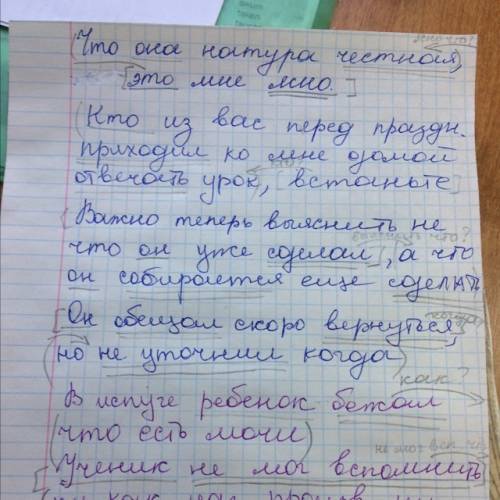 ясно что?
(Что она натура честная,
[это мне ясно.]
(Кто из вас перед праздн.
приходил ко мне домой
кто?
отвечать урок, встаньте]
[Важно теперь выяснить не
выяснить что?
что он уже сделал, а что
он собирается еще сделать
[Он обещал скоро вернуться,
(но не уточнил когда)
как?
В испуге ребенок бежал
(что есть мочи)
не мог всп. что?
[Ученик не мог вспомнить